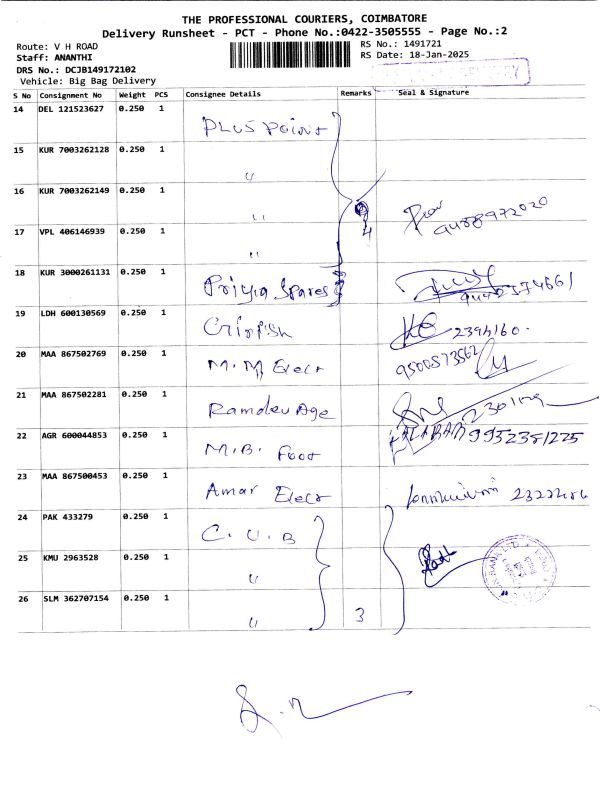 THE PROFESSIONAL COURIERS, COIMBATORE
Delivery Runsheet - PCT - Phone No.:0422-3505555 - Page No.:2
Route: V H ROAD
RS No.: 1491721
Staff: ANANTHI
RS Date: 18-Jan-2025
DRS No.: DCJB149172102
Vehicle: Big Bag Delivery
S No Consignment No Weight PCS Consignee Details Remarks Seal & Signature
14 DEL 121523627 0.250 1 PLUS Point
15 KUR 7003262128 0.250 1 "
16 KUR 7003262149 0.250 1 " 9488972020
17 VPL 406146939 0.250 1 " 4
18 KUR 3000261131 0.250 1 Priyia Spares
19 LDH 600130569 0.250 1
20 MAA 867502769 0.250 1 M.M Elect 9500573562
21 MAA 867502281 0.250 1 Ramdev Age
22 AGR 600044853 0.250 1 M.B. Foot 9952381225
23 MAA 867500453 0.250 1 Amar Elect
24 PAK 433279 0.250 1 C.U.B
25 KMU 2963528 0.250 1 "
26 SLM 362707154 0.250 1 " 3